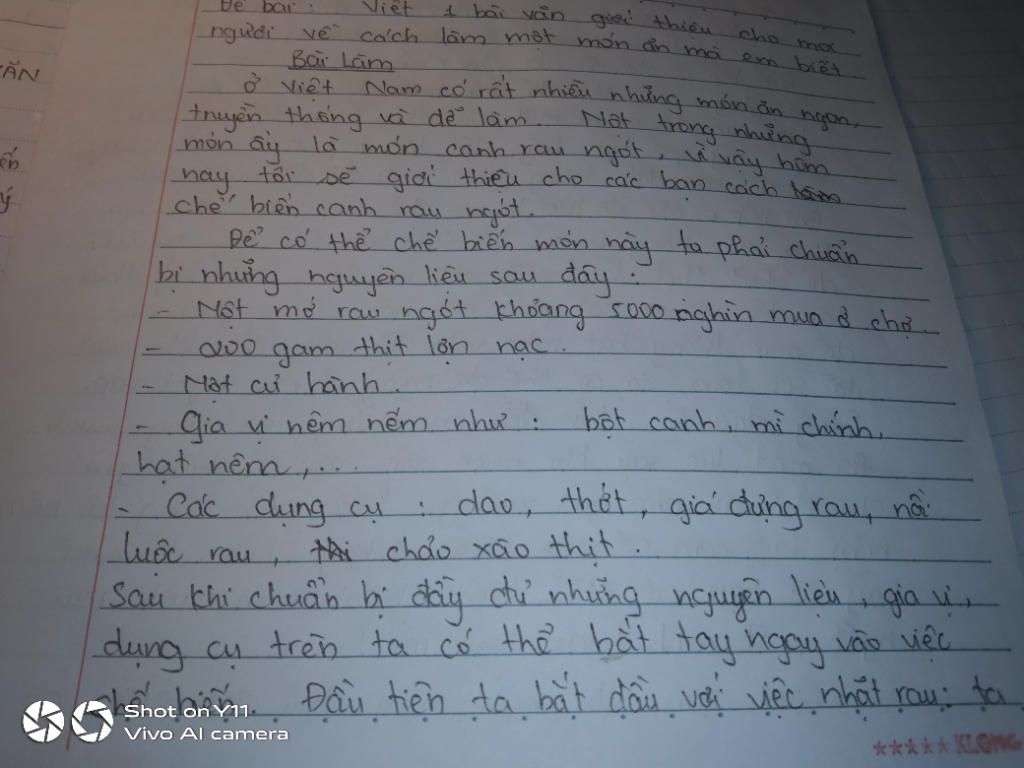 ĂN
ến
ý
Đề bài: Viết 1 bài văn giới thiệu cho mọi
người về cách làm một món ăn mà em biết
Bài làm
Ở Việt Nam có rất nhiều những món ăn ngon,
truyền thống và dễ làm. Một trong những
món ấy là món canh rau ngót, vì vậy hôm
nay tôi sẽ giới thiệu cho các bạn cách làm
chế biến canh rau ngót.
Để có thể chế biến món này ta phải chuẩn
bị những nguyên liệu sau đây:
- Một mớ rau ngót khoảng 5000 nghìn mua ở chợ
- 200 gam thịt lợn nạc.
- Một củ hành
- Gia vị nêm nếm như: bột canh, mì chính,
hạt nêm,...
- Các dụng cụ: dao, thớt, giá đựng rau, nồi
luộc rau, chảo xào thịt.
Sau khi chuẩn bị đầy đủ những nguyên liệu, gia vị,
dụng cụ trên ta có thể bắt tay ngay vào việc
chế biến. Đầu tiên ta bắt đầu với việc nhặt rau: ta
Shot on Y11
Vivo AI camera
KLONG